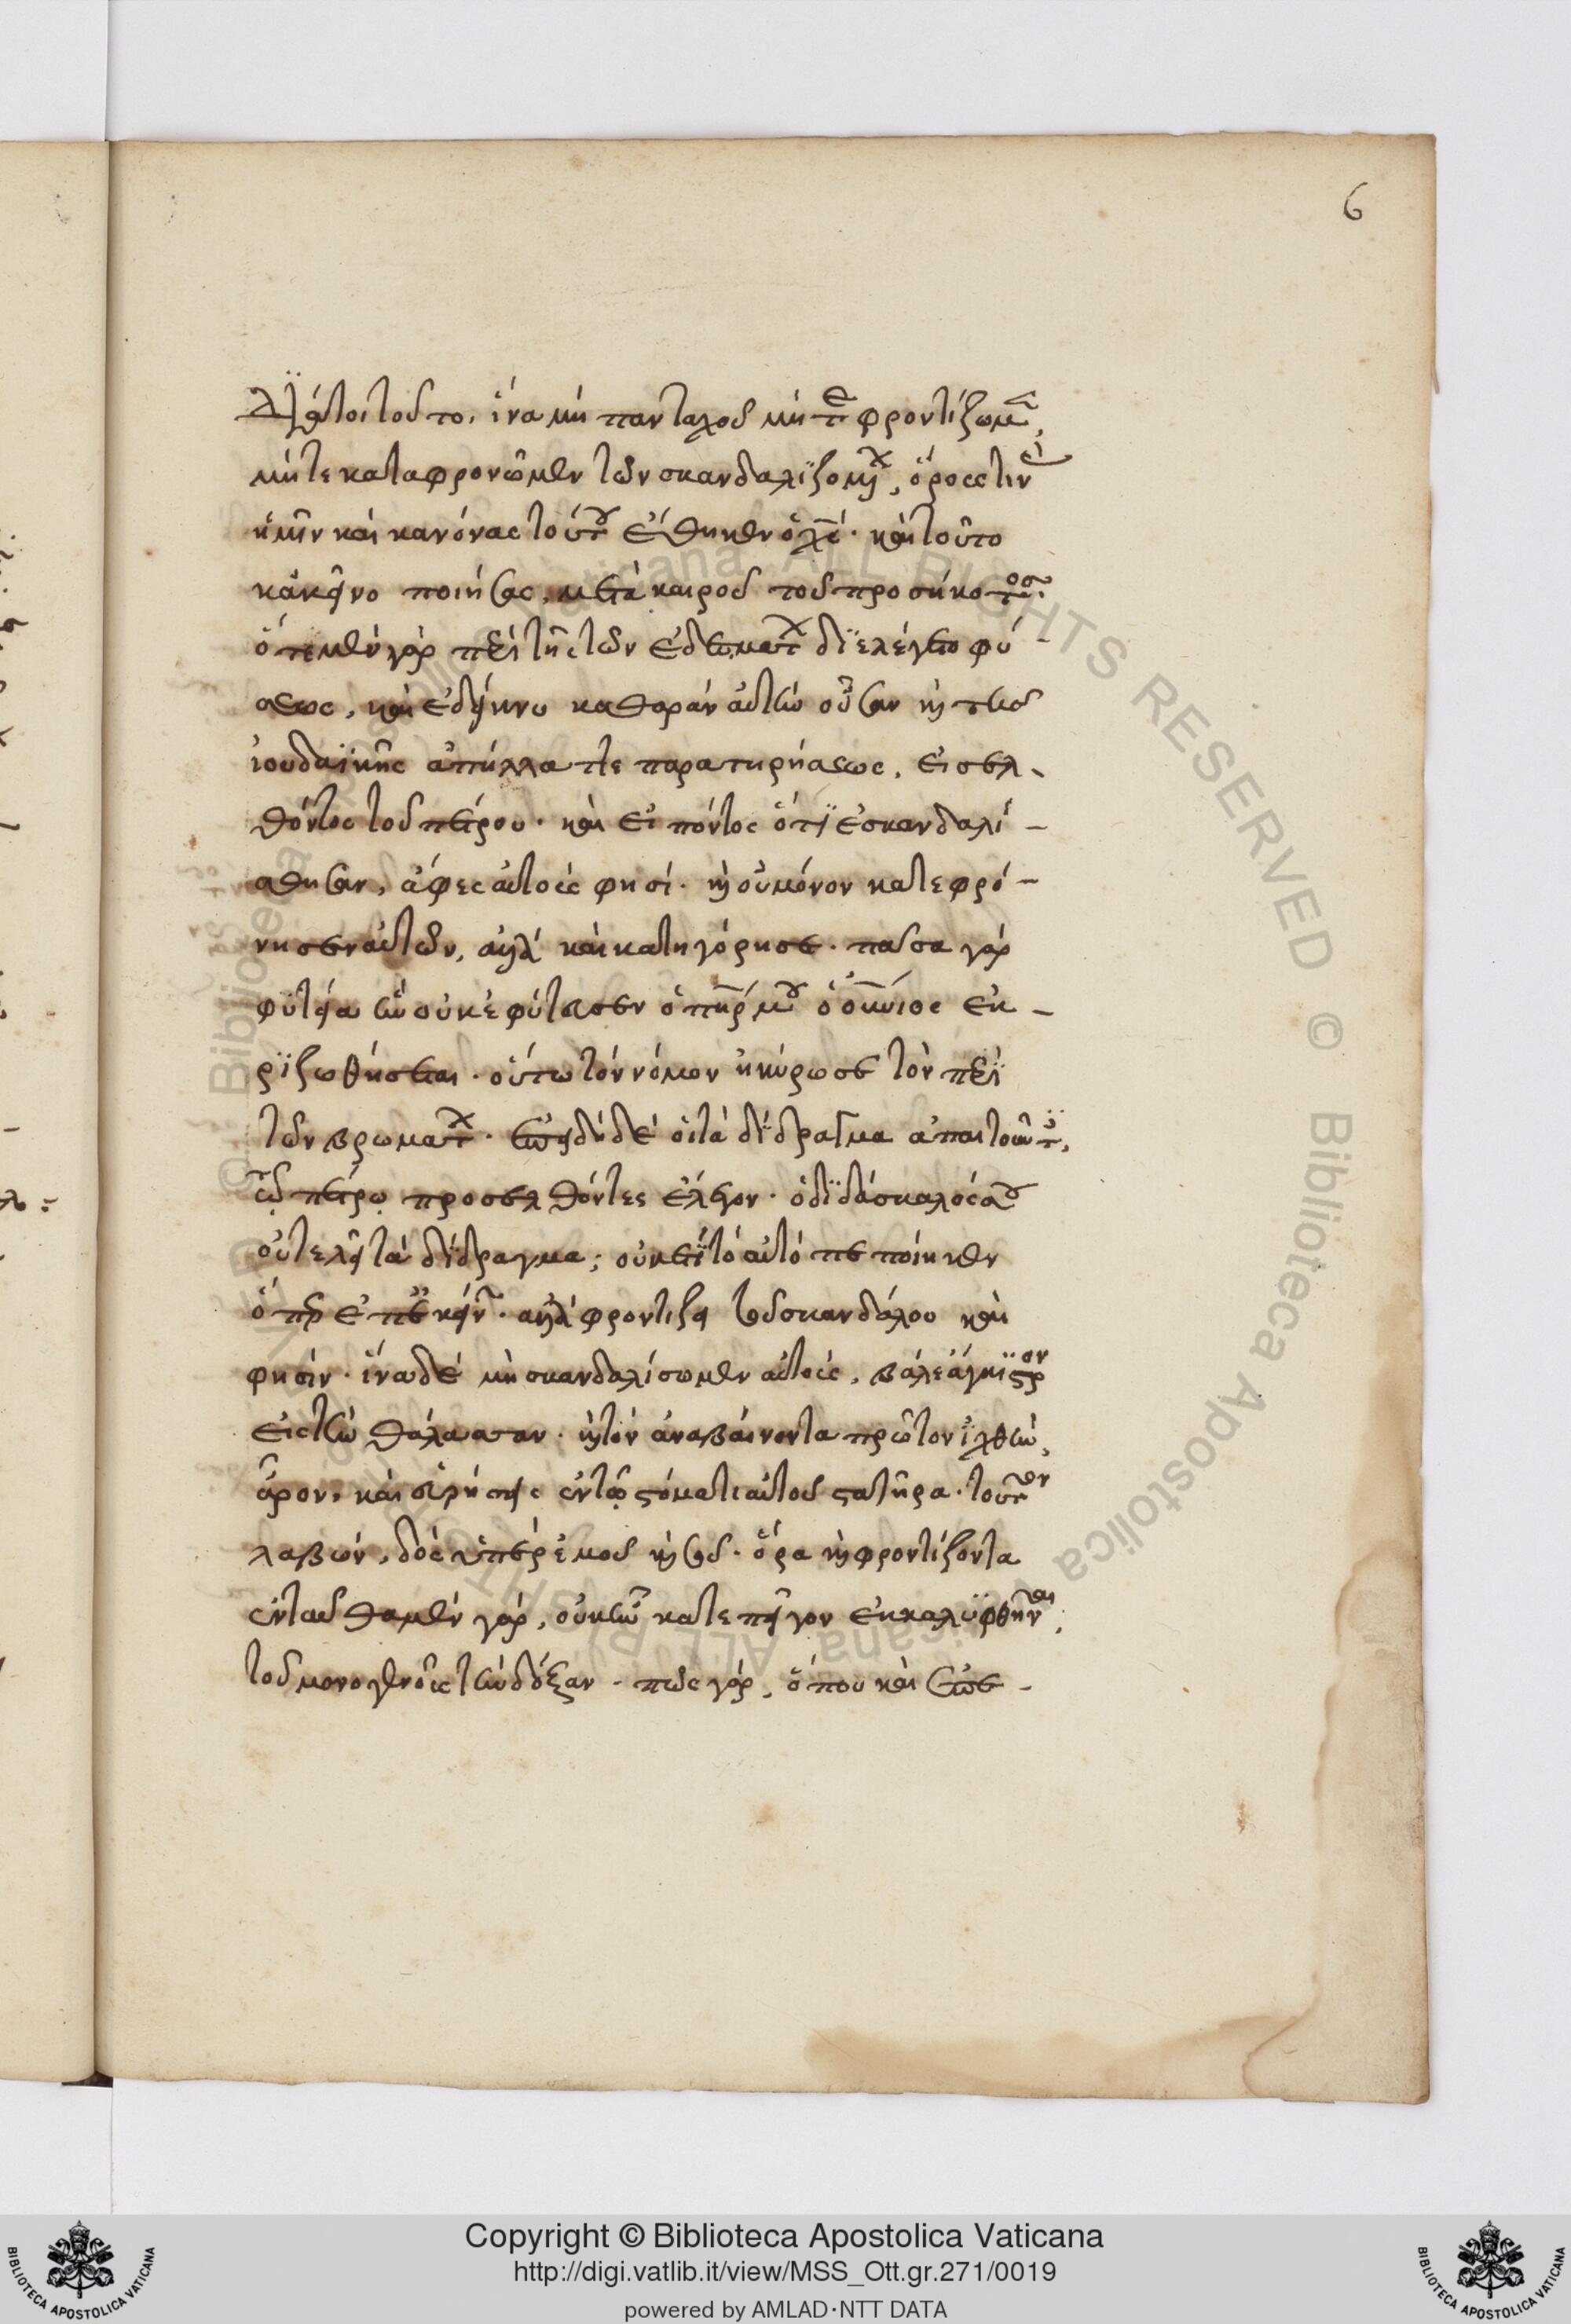 6
διάτοι τοῦτο, ἵνα μὴ πανταχοῦ μήτε φροντίζωμεν,
μήτε καταφρονῶμεν τῶν σκανδαλιζομένων, ὅρος ἐστὶν
ἡμῖν καὶ κανόνας τούτου ἔθηκεν ὁ χς· καὶ τοῦτο
κἀκεῖνο ποιήσας, μετὰ καιροῦ τοῦ προσήκοντος·
ὅτε μὲν γὰρ περὶ τῆς τῶν ἐδεσμάτων διελέγετο φύ-
σεως, καὶ ἐδείκνυ καθαρὰν αὐτὴν οὖσαν καὶ τῆς
ἰουδαϊκῆς ἀπήλλαττε παρατηρήσεως, εἰσελ-
θόντος τοῦ πέτρου· καὶ εἰπόντος ὅτι ἐσκανδαλί-
σθησαν, ἄφες αὐτοὺς φησί· καὶ οὐ μόνον κατεφρό-
νησεν αὐτῶν, ἀλλὰ καὶ κατηγόρησε· πᾶσα γὰρ
φυτεία ἣν οὐκ ἐφύτευσεν ὁ πηρ μου ὁ οὐνιος ἐκ-
ριζωθήσεται· οὕτω τὸν νόμον ἠκύρωσε τὸν περὶ
τῶν βρωμάτων· ἐπειδὴ δὲ οἱ τὰ δίδραγμα ἀπαιτοῦντες,
τῷ πέτρω προσελθόντες ἔλεγον· ὁ διδάσκαλός σου
οὐ τελεῖ τὰ δίδραγμα; οὐκέτι τὸ αὐτὸ πεποίηκεν
ὅπερ ἐπ' ἐκείνων· ἀλλὰ φροντίζει τοῦ σκανδάλου καὶ
φησίν· ἵνα δὲ μὴ σκανδαλίσωμεν αὐτοὺς, βάλε ἄγκιστρον
εἰς τὴν θάλασσαν· καὶ τὸν ἀναβαίνοντα πρῶτον ἰχθὺν,
ἆρον, καὶ εὑρήσεις ἐν τῷ στόματι αὐτοῦ στατῆρα· τοῦτον
λαβὼν, δὸς ὑπὲρ ἐμοῦ καὶ σοῦ· ὅρα καὶ φροντίζοντα
ἐνταῦθα μὲν γὰρ, οὐκ ἦν κατεπεῖγον ἐκκαλυφθῆναι
τοῦ μονογενοῦς τὴν δόξαν· πῶς γὰρ, ὅπου καὶ ἐπε-
Copyright © Biblioteca Apostolica Vaticana
http://digi.vatlib.it/view/MSS_Ott.gr.271/0019
powered by AMLAD·NTT DATA